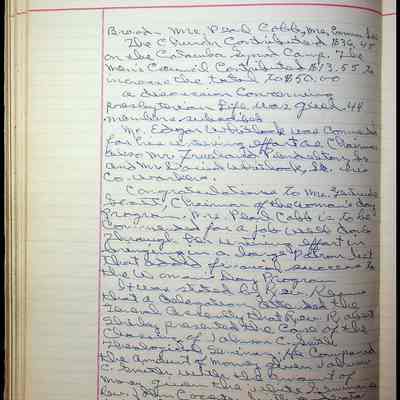 Broad. Mrs. Pearl Cobb, Mrs. Emma Lee
The Church Contributed $36.45
on the Catawba Synod Camp. The
Men's Council Contributed $13.55 to
increase the total to $50.00
a discussion Concerning
Presbyterian Life was given 44
members subscribed
Mr. Edgar Whitlock was Commended
for his untiring effort as Chairman
also Mr.
and Mr. Whitlock, Sr. his
Co workers.
Congratulations to Mrs. Gertrude
Scott, Chairman of the Woman's day
Program. Mrs. Pearl Cobb is to be
Commended for a job well done
through her untiring effort in
a large Patron list
that added financial success to
the Woman's Day Program
It was stated by Rev. Rogers
that a delegation
General Assembly that Rev. Robert
Shirley presented the Case of the
Closing of Johnson C. Smith
Theological Seminary. He Compared
the amount of money given Johnson
C. Smith with the amount of
money given the white Seminaries
Rev. John